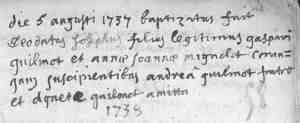 die 5 augusti 1737 baptizatus fuit
Deodatus Josephus filius legitimus gaspari
quilmot et annæ Joannæ mignolet coniu-
gum suscipientibus andrea quilmot fratre
et agnete quilonet amitta
1738